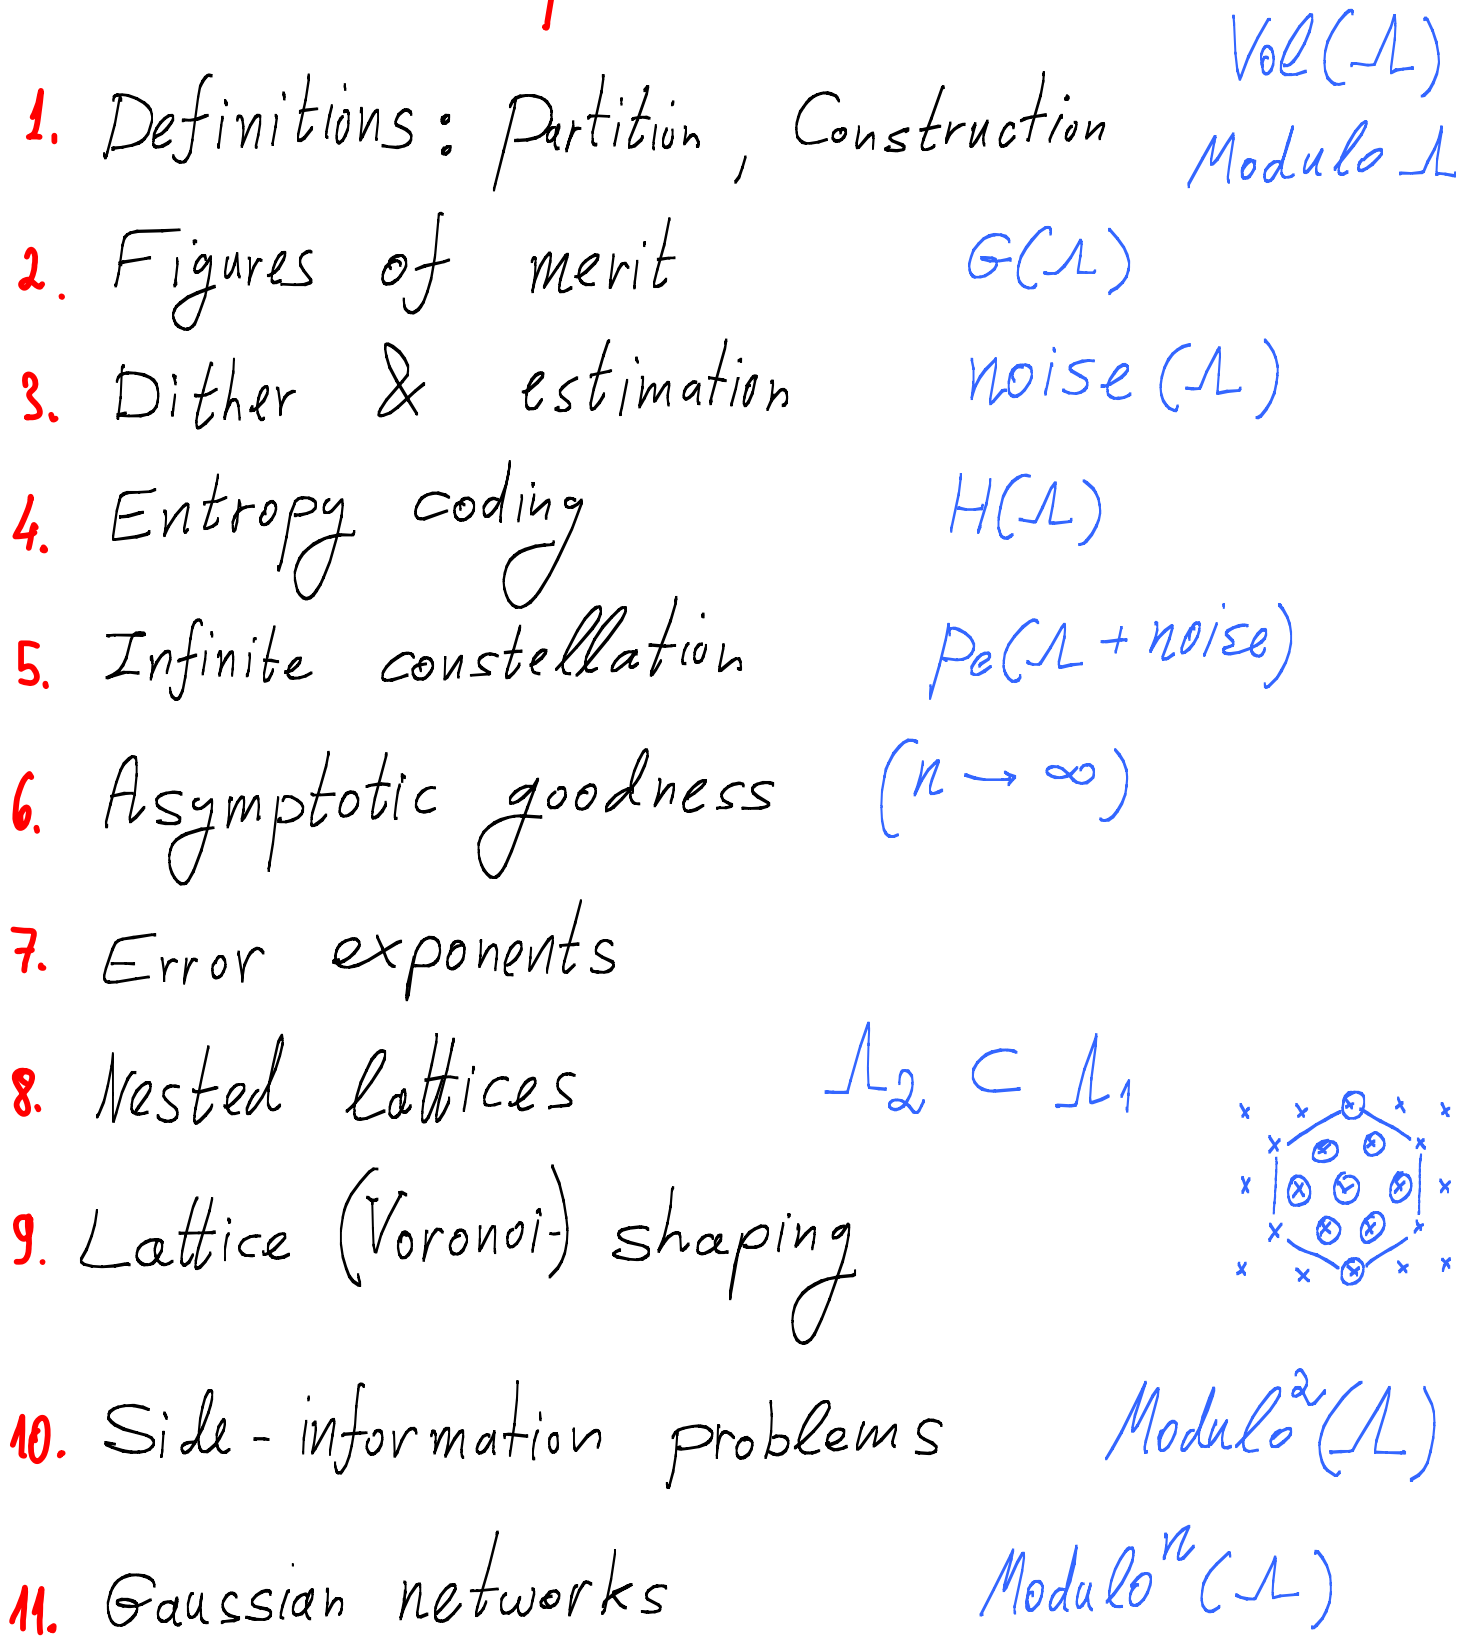 Vol(Λ)
1. Definitions: Partition, Construction Modulo Λ
2. Figures of merit G(Λ)
3. Dither & estimation noise(Λ)
4. Entropy coding H(Λ)
5. Infinite constellation Pe(Λ + noise)
6. Asymptotic goodness (n → ∞)
7. Error exponents
8. Nested lattices Λ₂ ⊂ Λ₁
9. Lattice (Voronoi-) shaping
10. Side-information problems Modulo²(Λ)
11. Gaussian networks Moduloⁿ(Λ)